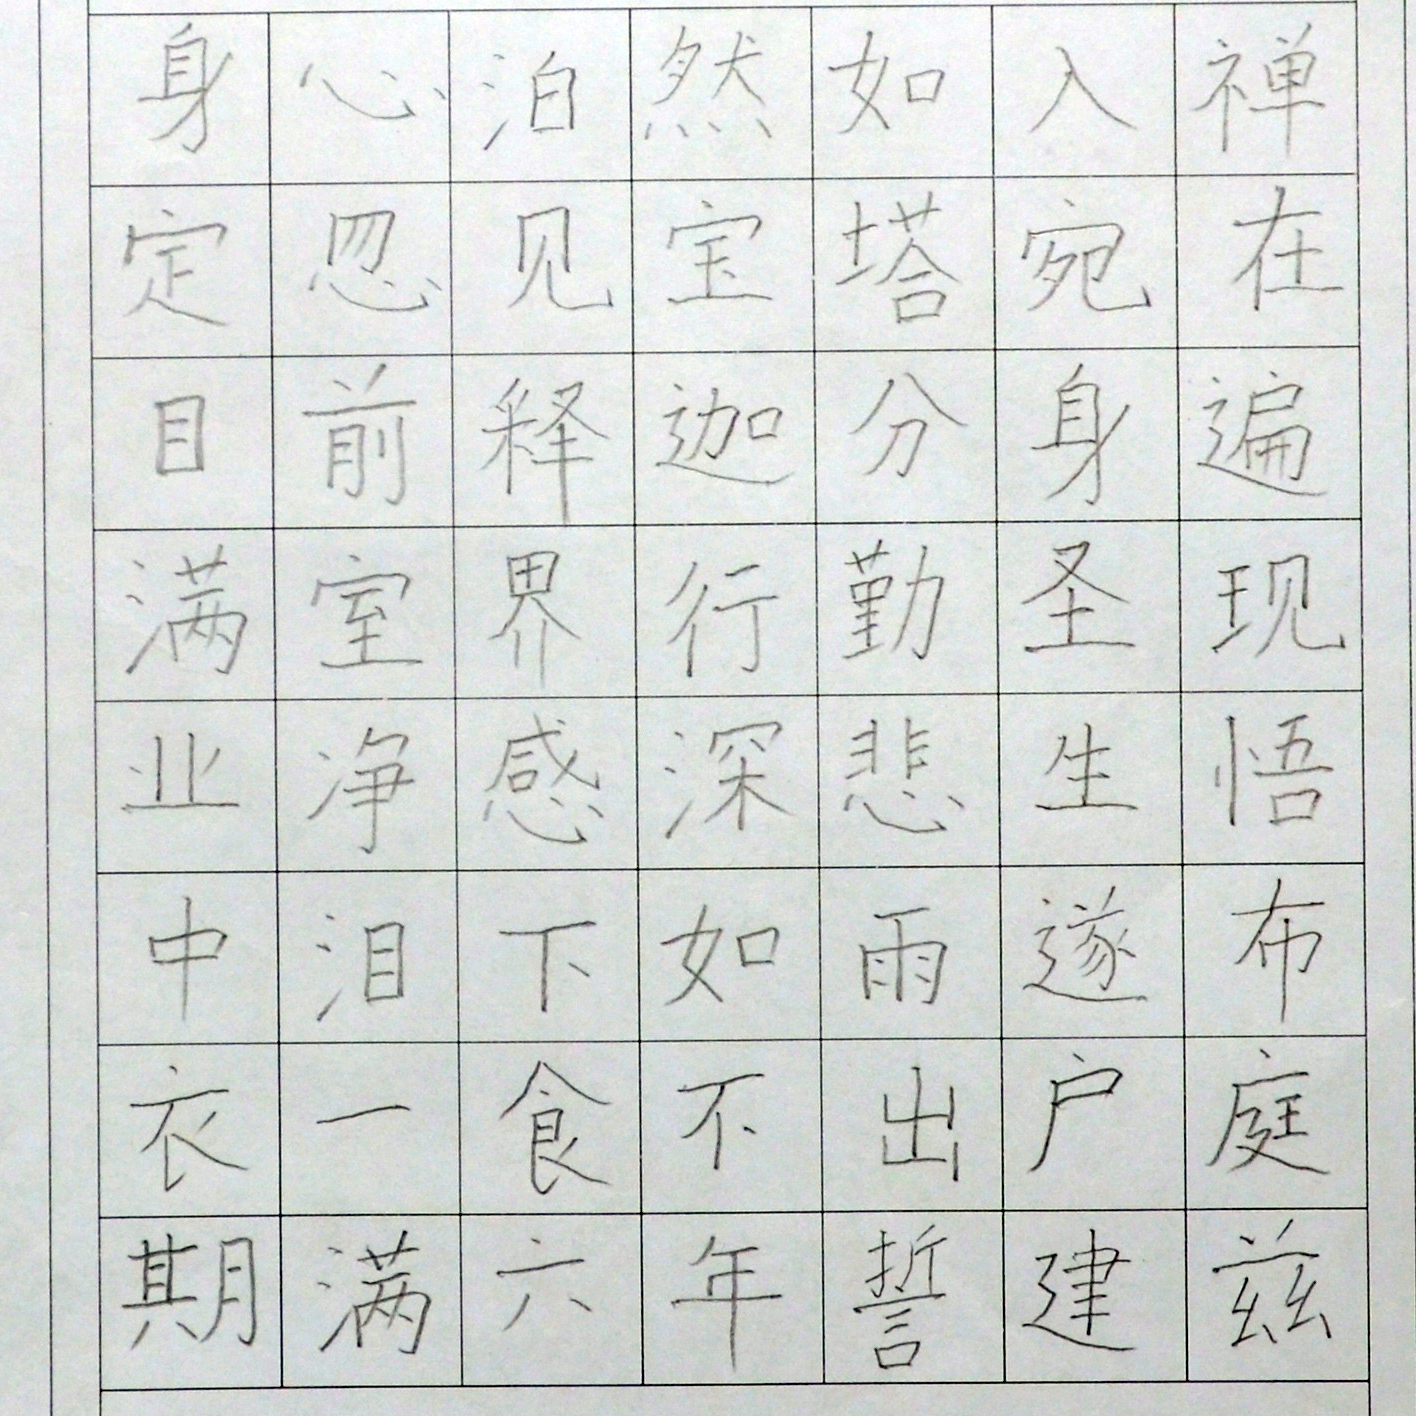 身心泊然如入禅
定忽见宝塔宛在
目前释迦分身遍
满室界行勤圣现
业净感深悲生悟
中泪下如雨遂布
衣一食不出户庭
期满六年誓建兹